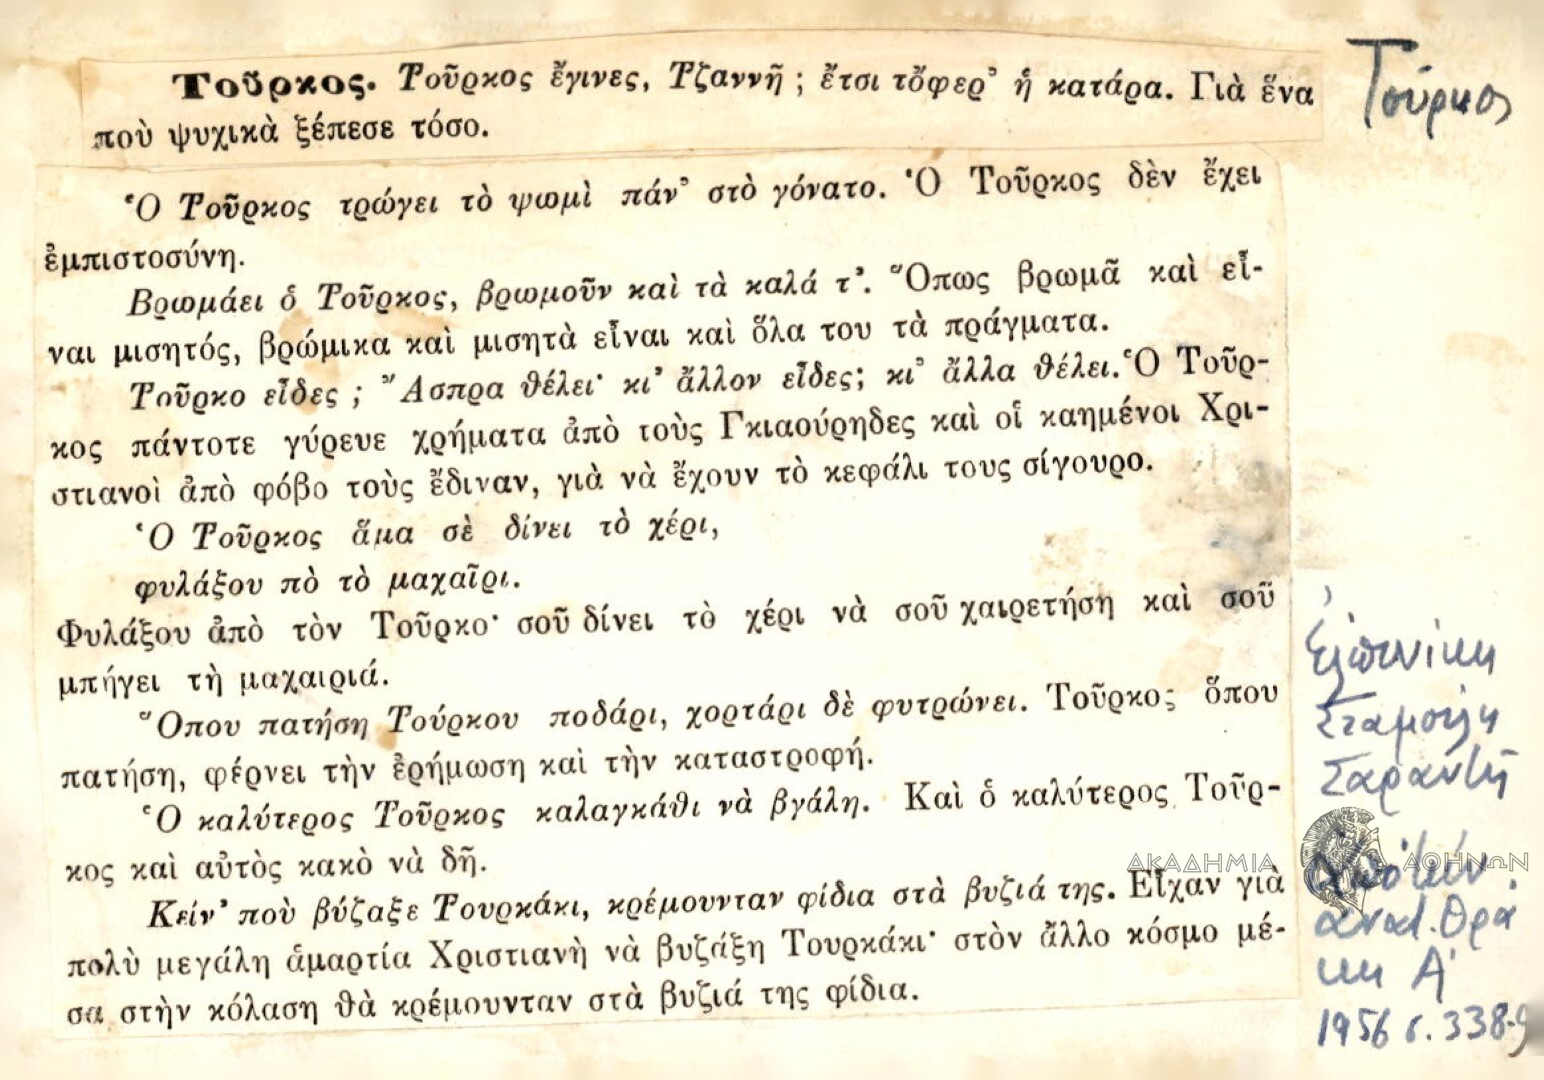 Τοῦρκος. Τοῦρκος ἔγινες, Τζαννῆ ; ἔτσι τὄφερ᾿ ἡ κατάρα. Γιὰ ἕνα
ποὺ ψυχικὰ ξέπεσε τόσο.
Τούρκος
Ὁ Τοῦρκος τρώγει τὸ ψωμὶ πάν᾿ στὸ γόνατο. Ὁ Τοῦρκος δὲν ἔχει
ἐμπιστοσύνη.
Βρωμάει ὁ Τοῦρκος, βρωμοῦν καὶ τὰ καλά τ᾿. Ὅπως βρωμᾶ καὶ εἶ-
ναι μισητός, βρώμικα καὶ μισητὰ εἶναι καὶ ὅλα του τὰ πράγματα.
Τοῦρκο εἶδες ; Ἄσπρα θέλει· κι᾿ ἄλλον εἶδες; κι᾿ ἄλλα θέλει. Ὁ Τοῦρ-
κος πάντοτε γύρευε χρήματα ἀπὸ τοὺς Γκιαούρηδες καὶ οἱ καημένοι Χρι-
στιανοὶ ἀπὸ φόβο τοὺς ἔδιναν, γιὰ νὰ ἔχουν τὸ κεφάλι τους σίγουρο.
Ὁ Τοῦρκος ἅμα σὲ δίνει τὸ χέρι,
φυλάξου πὸ τὸ μαχαῖρι.
Φυλάξου ἀπὸ τὸν Τοῦρκο· σοῦ δίνει τὸ χέρι νὰ σοῦ χαιρετήση καὶ σοῦ
μπήγει τὴ μαχαιριά.
Ὅπου πατήση Τούρκου ποδάρι, χορτάρι δὲ φυτρώνει. Τοῦρκος ὅπου
πατήση, φέρνει τὴν ἐρήμωση καὶ τὴν καταστροφή.
Ὁ καλύτερος Τοῦρκος καλαγκάθι νὰ βγάλη. Καὶ ὁ καλύτερος Τοῦρ-
κος καὶ αὐτὸς κακὸ νὰ δῆ.
Κείν᾿ ποὺ βύζαξε Τουρκάκι, κρέμουνταν φίδια στὰ βυζιά της. Εἶχαν γιὰ
πολὺ μεγάλη ἁμαρτία Χριστιανὴ νὰ βυζάξη Τουρκάκι· στὸν ἄλλο κόσμο μέ-
σα στὴν κόλαση θὰ κρέμουνταν στὰ βυζιά της φίδια.
Ἐλπινίκη
Σταμούλη
Σαραντῆ
ἀνατ. Θρά
κη Α'
1956 σ. 338-9
ΑΚΑΔΗΜΙΑ ΑΘΗΝΩΝ